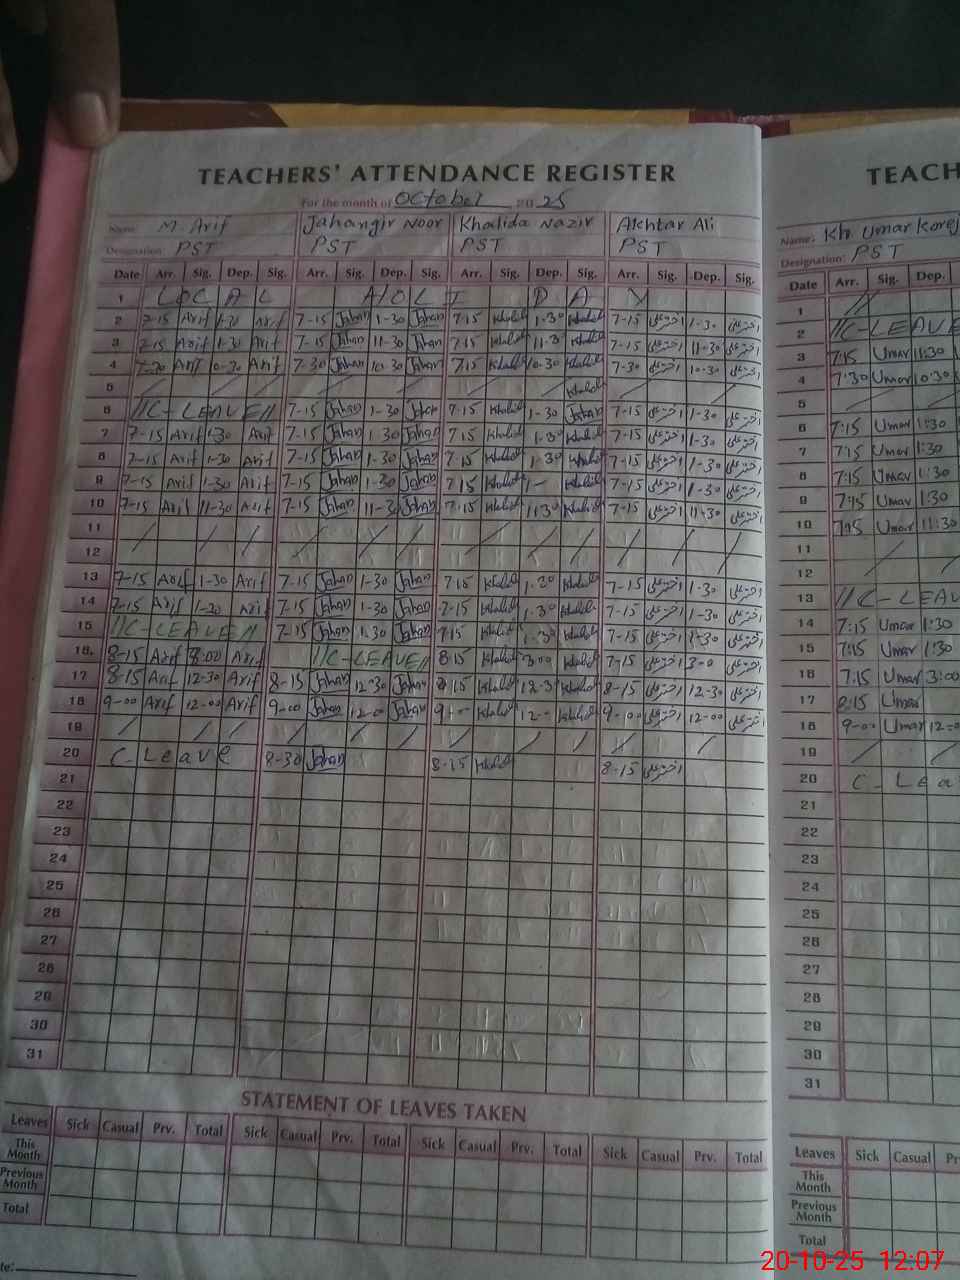 TEACHERS' ATTENDANCE REGISTER
For the month of October 2025
Name: M. Arif Jahangir Noor Khalida Nazir Akhtar Ali
Designation: PST PST PST PST
Date Arr. Sig. Dep. Sig. Arr. Sig. Dep. Sig. Arr. Sig. Dep. Sig. Arr. Sig. Dep. Sig.
1 LOCAL HOLI DAY
2 7-15 Arif 1-30 Arif 7-15 Jahan 1-30 Jahan 7-15 Khalid 1-30 Khalid 7-15 اختر علی 1-30 اختر علی
3 7-15 Arif 1-30 Arif 7-15 Jahan 11-30 Jahan 7-15 Khalid 11-3 Khalid 7-15 اختر علی 11-30 اختر علی
4 7-30 Arif 10-30 Arif 7-30 Jahan 10-30 Jahan 7-15 Khalid 10-30 Khalid 7-30 اختر علی 10-30 اختر علی
5 Khalid
6 //C-LEAVE// 7-15 Jahan 1-30 Jahan 7-15 Khalid 1-30 Jahan 7-15 اختر علی 1-30 اختر علی
7 7-15 Arif 1-30 Arif 7-15 Jahan 1-30 Jahan 7-15 Khalid 1-30 Khalid 7-15 اختر علی 1-30 اختر علی
8 7-15 Arif 1-30 Arif 7-15 Jahan 1-30 Jahan 7-15 Khalid 1-30 Khalid 7-15 اختر علی 1-30 اختر علی
9 7-15 Arif 1-30 Arif 7-15 Jahan 1-30 Jahan 7-15 Khalid 1- Khalid 7-15 اختر علی 1-30 اختر علی
10 7-15 Arif 11-30 Arif 7-15 Jahan 11-30 Jahan 7-15 Khalid 11-30 Khalid 7-15 اختر علی 11-30 اختر علی
11
12
13 7-15 Arif 1-30 Arif 7-15 Jahan 1-30 Jahan 7-15 Khalid 1-30 Khalid 7-15 اختر علی 1-30 اختر علی
14 7-15 Arif 1-30 Arif 7-15 Jahan 1-30 Jahan 7-15 Khalid 1-30 Khalid 7-15 اختر علی 1-30 اختر علی
15 //C-LEAVE// 7-15 Jahan 1-30 Jahan 7-15 Khalid 1-30 Khalid 7-15 اختر علی 1-30 اختر علی
16 8-15 Arif 8:00 Arif //C-LEAVE// 8-15 Khalid 3-00 Khalid 7-15 اختر علی 3-0 اختر علی
17 8-15 Arif 12-30 Arif 8-15 Jahan 12-30 Jahan 8-15 Khalid 12-3 Khalid 8-15 اختر علی 12-30 اختر علی
18 9-00 Arif 12-00 Arif 9-00 Jahan 12-00 Jahan 9-- Khalid 12-- Khalid 9-00 اختر علی 12-00 اختر علی
19
20 C-Leave 8-30 Jahan 8-15 Khalid 8-15 اختر علی
21
22
23
24
25
26
27
28
29
30
31
STATEMENT OF LEAVES TAKEN
Leaves Sick Casual Prv. Total Sick Casual Prv. Total Sick Casual Prv. Total Sick Casual Prv. Total
This Month
Previous Month
Total
te:
TEACH
Name: Kh. Umar Korej
Designation: PST
Date Arr. Sig. Dep.
1 //
2 //C-LEAVE
3 7:15 Umar 11:30
4 7:30 Umar 10:30
5
6 7:15 Umar 1:30
7 7:15 Umar 1:30
8 7:15 Umar 1:30
9 7:15 Umar 1:30
10 7:15 Umar 11:30
11
12
13 //C-LEAV
14 7:15 Umar 1:30
15 7:15 Umar 1:30
16 7:15 Umar 3:00
17 8:15 Umar
18 9-00 Umar 12-00
19
20 C-Lea
21
22
23
24
25
26
27
28
29
30
31
Leaves Sick Casual Pr
This Month
Previous Month
Total
20-10-25 12:07